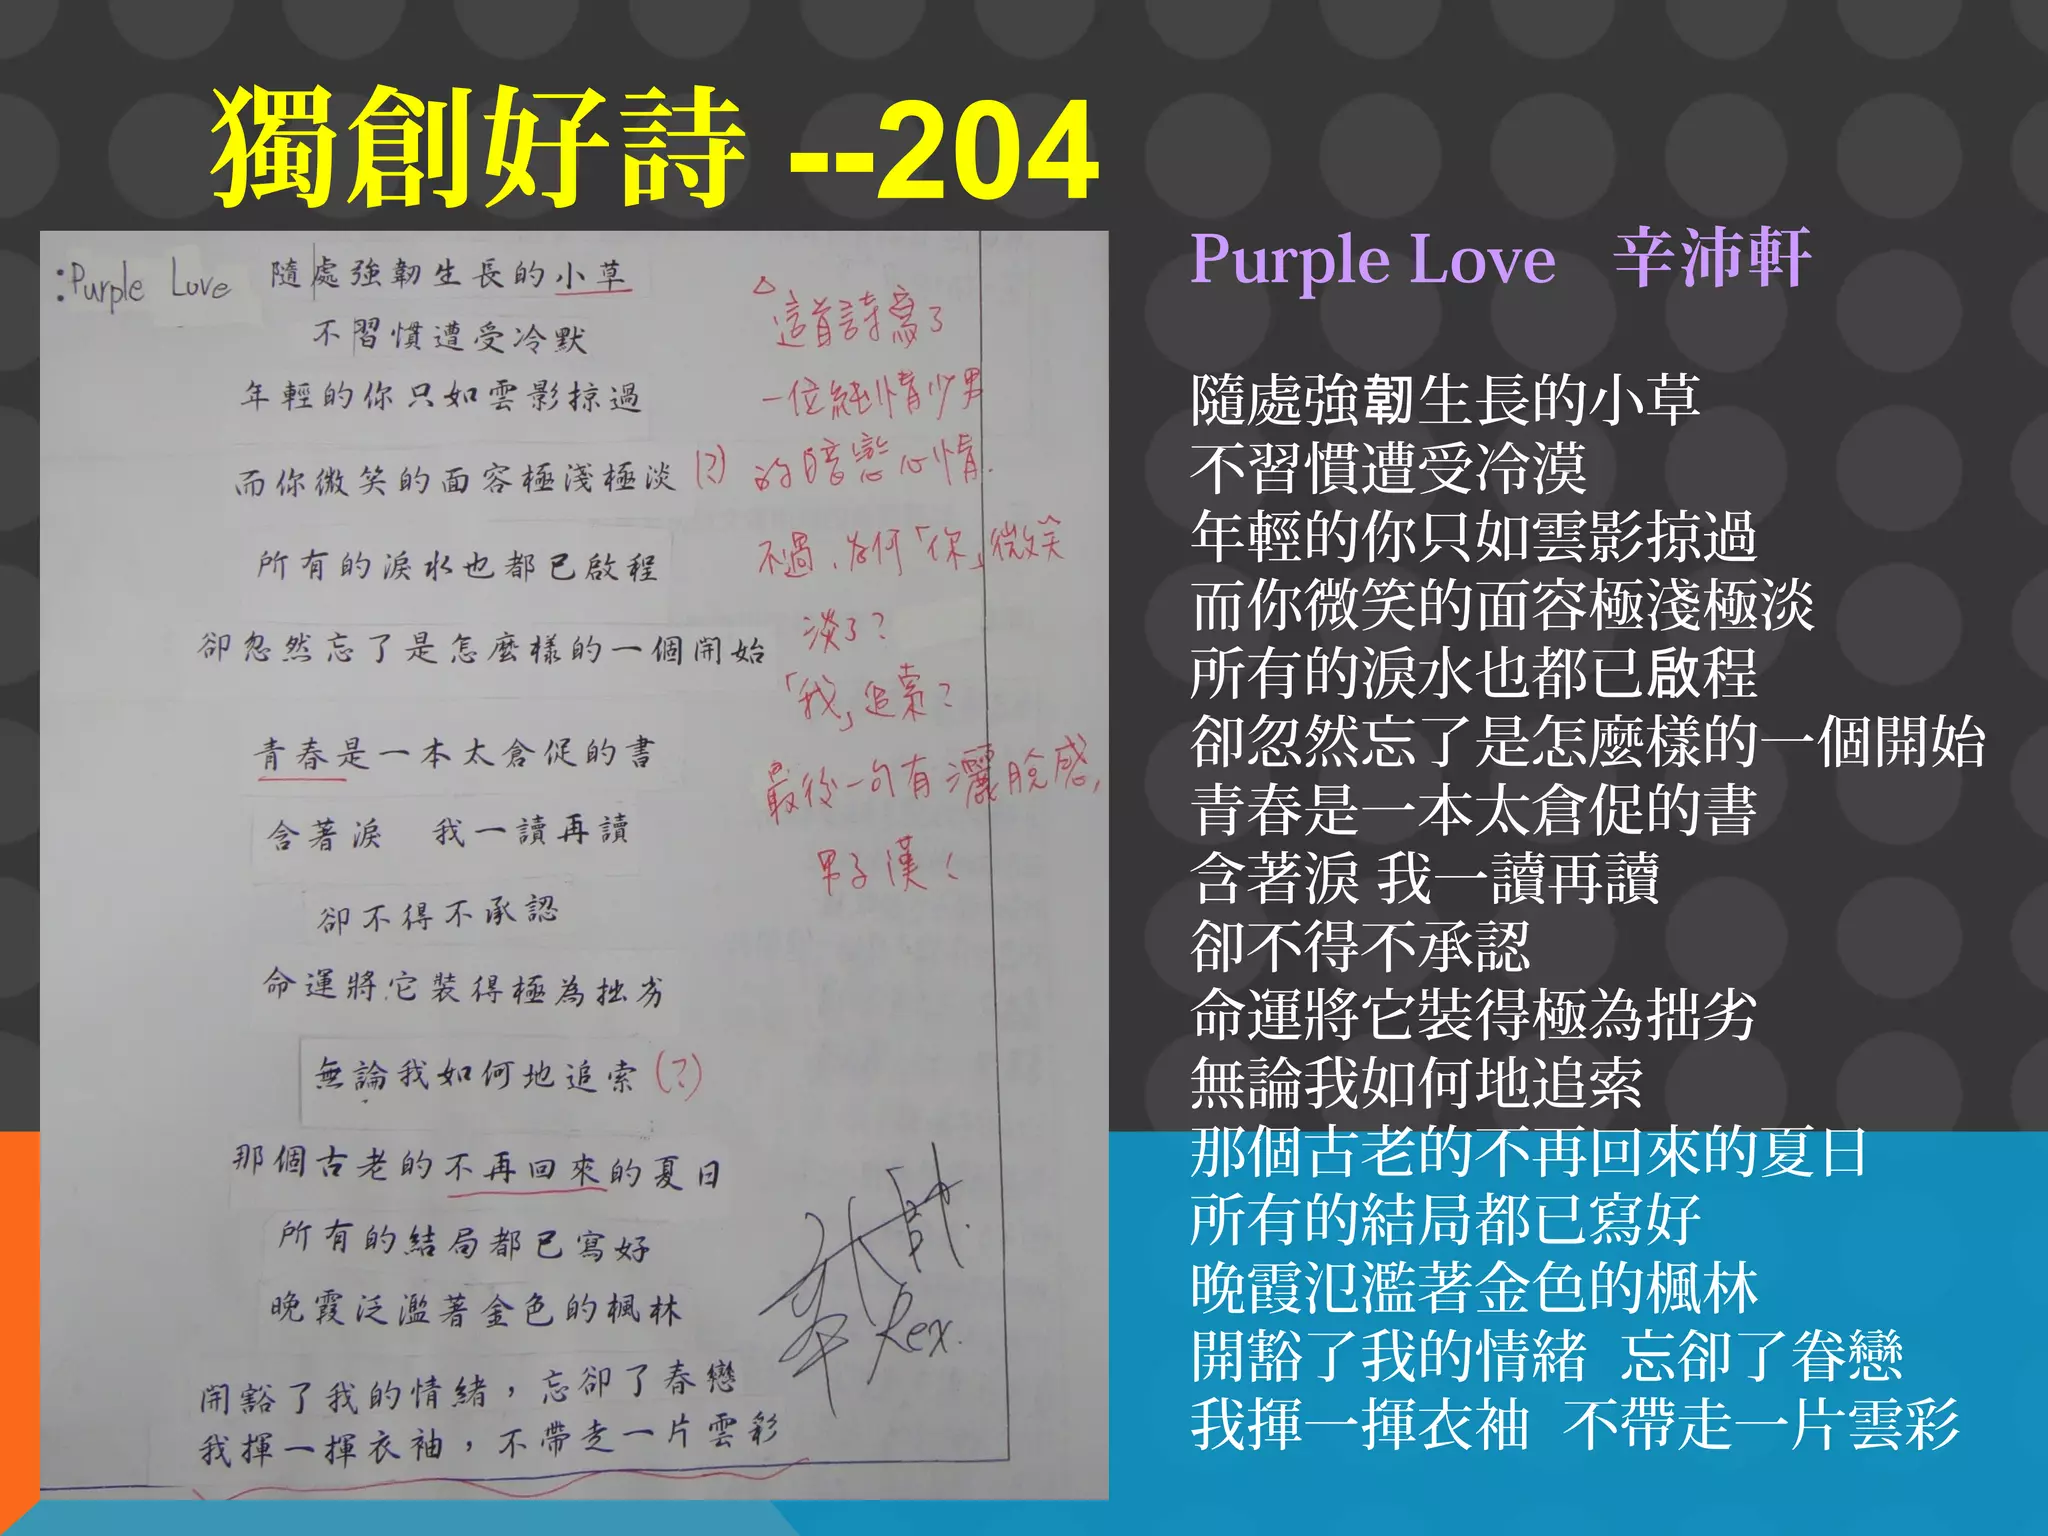 獨創好詩 --204
:Purple Love
隨處強韌生長的小草
不習慣遭受冷默
年輕的你只如雲影掠過
而你微笑的面容極淺極淡 (?)
所有的淚水也都已啟程
卻忽然忘了是怎麼樣的一個開始
青春是一本太倉促的書
含著淚 我一讀再讀
卻不得不承認
命運將它裝得極為拙劣
無論我如何地追索 (?)
那個古老的不再回來的夏日
所有的結局都已寫好
晚霞泛濫著金色的楓林
開豁了我的情緒，忘卻了春戀
我揮一揮衣袖，不帶走一片雲彩
△這首詩寫了
一位純情少男
的暗戀心情.
不過，為何「你」微笑
淡了?
「我」追索?
最後一句有灑脫感,
男子漢!
Rex.
Purple Love 辛沛軒
隨處強韌生長的小草
不習慣遭受冷漠
年輕的你只如雲影掠過
而你微笑的面容極淺極淡
所有的淚水也都已啟程
卻忽然忘了是怎麼樣的一個開始
青春是一本太倉促的書
含著淚 我一讀再讀
卻不得不承認
命運將它裝得極為拙劣
無論我如何地追索
那個古老的不再回來的夏日
所有的結局都已寫好
晚霞氾濫著金色的楓林
開豁了我的情緒 忘卻了眷戀
我揮一揮衣袖 不帶走一片雲彩